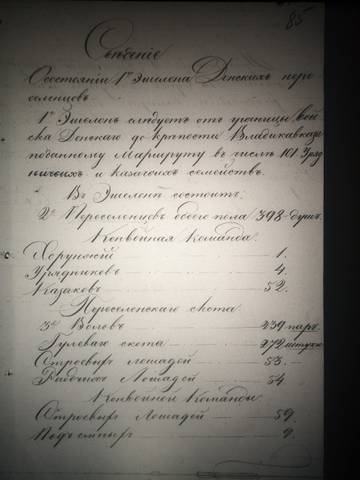 85
Свѣденіе
О состояніи 1го Эшелона Донскихъ пере
селенцовъ
1й Эшелонъ слѣдуетъ отъ границы Вой
ска Донскаго до крѣпости Владикавказъ
по данному Маршруту въ числѣ 101 Уряд
ничьихъ и Казачьихъ семействъ.
Въ Эшелонѣ состоитъ:
Переселенцовъ обоего пола 398 душъ.
Конвойная Команда
Хорунжій 1.
Урядниковъ 4.
Казаковъ 52.
Переселенскаго скота
Воловъ 239 паръ
Гулеваго скота 272 штуки
Строевыхъ лошадей 53.
Рабочихъ Лошадей 54
Конвойной Команды
Строевыхъ Лошадей 59.
Подъемныхъ 9.